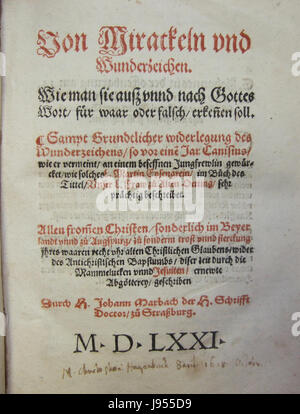 Von Mirackeln vnd
Wunderzeichen.
Wie man sie auß vnnd nach Gottes
Wort / für waar oder falsch / erkeñen soll.
Sampt Grundtlicher widerlegung des
Wunderzeichens / so vor eim Jar Canisius /
wie er vermeint / an einem besessnen Jungfrewlin gewür-
cket / wie solches H. Martin Eysengrein / im Büch des
Tittel / Vnser L. Fraw zu Alten Oeting / sehr
prächtig beschreibet.
Allen from̃en Christen / sonderlich im Beyer
landt vnnd zu Augspurg / zu sondern trost vnnd sterckung
jhres waaren recht vhralten Christlichen Glaubens / wider
des Antichristischen Bapstumbs / diser zeit durch die
Mammelucken vnnd Jesuiten / ernewte
Abgötterey / geschriben
Durch H. Johann Marbach der H. Schrifft
Doctor / zu Straßburg.
M. D. LXXI.
M.
alamy
Image ID: J955D9
www.alamy.com